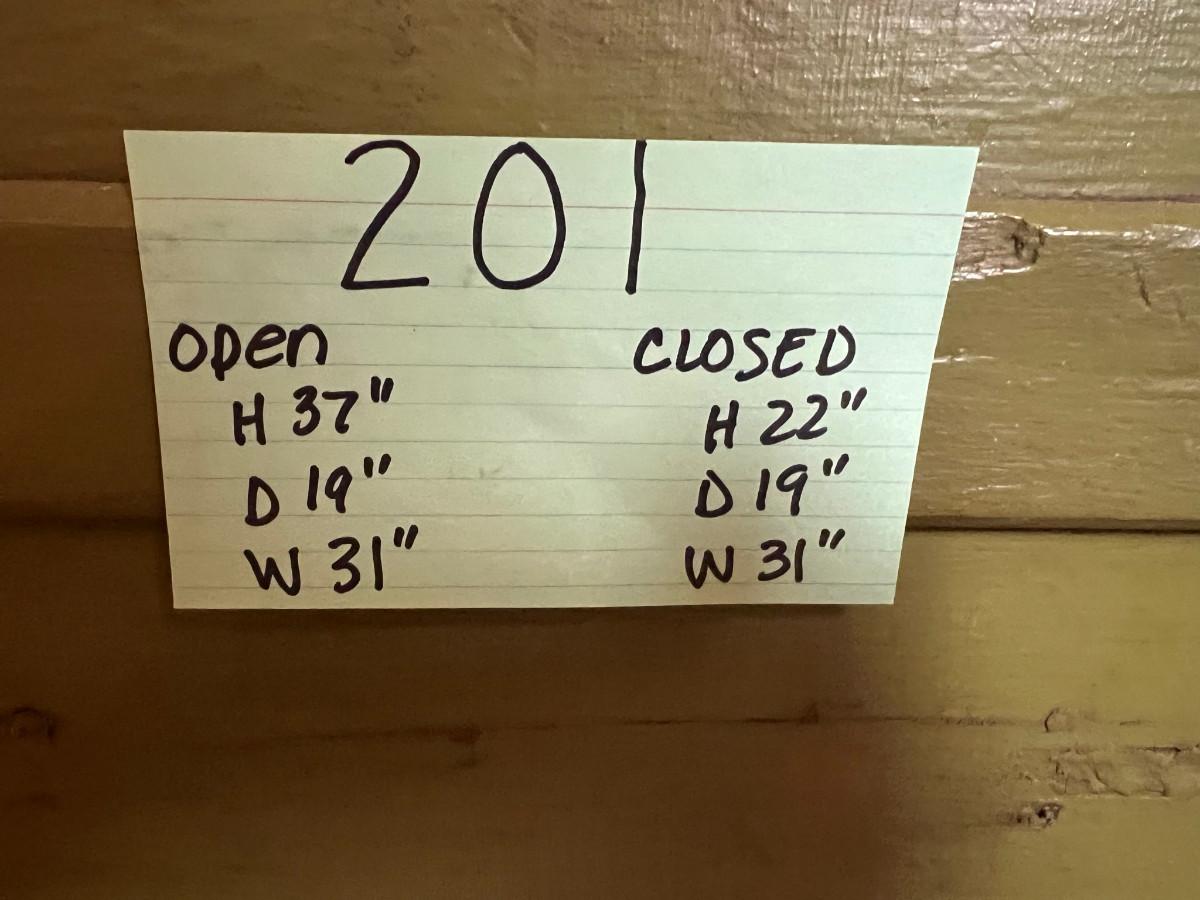 201
open CLOSED
H 37" H 22"
D 19" D 19"
W 31" W 31"